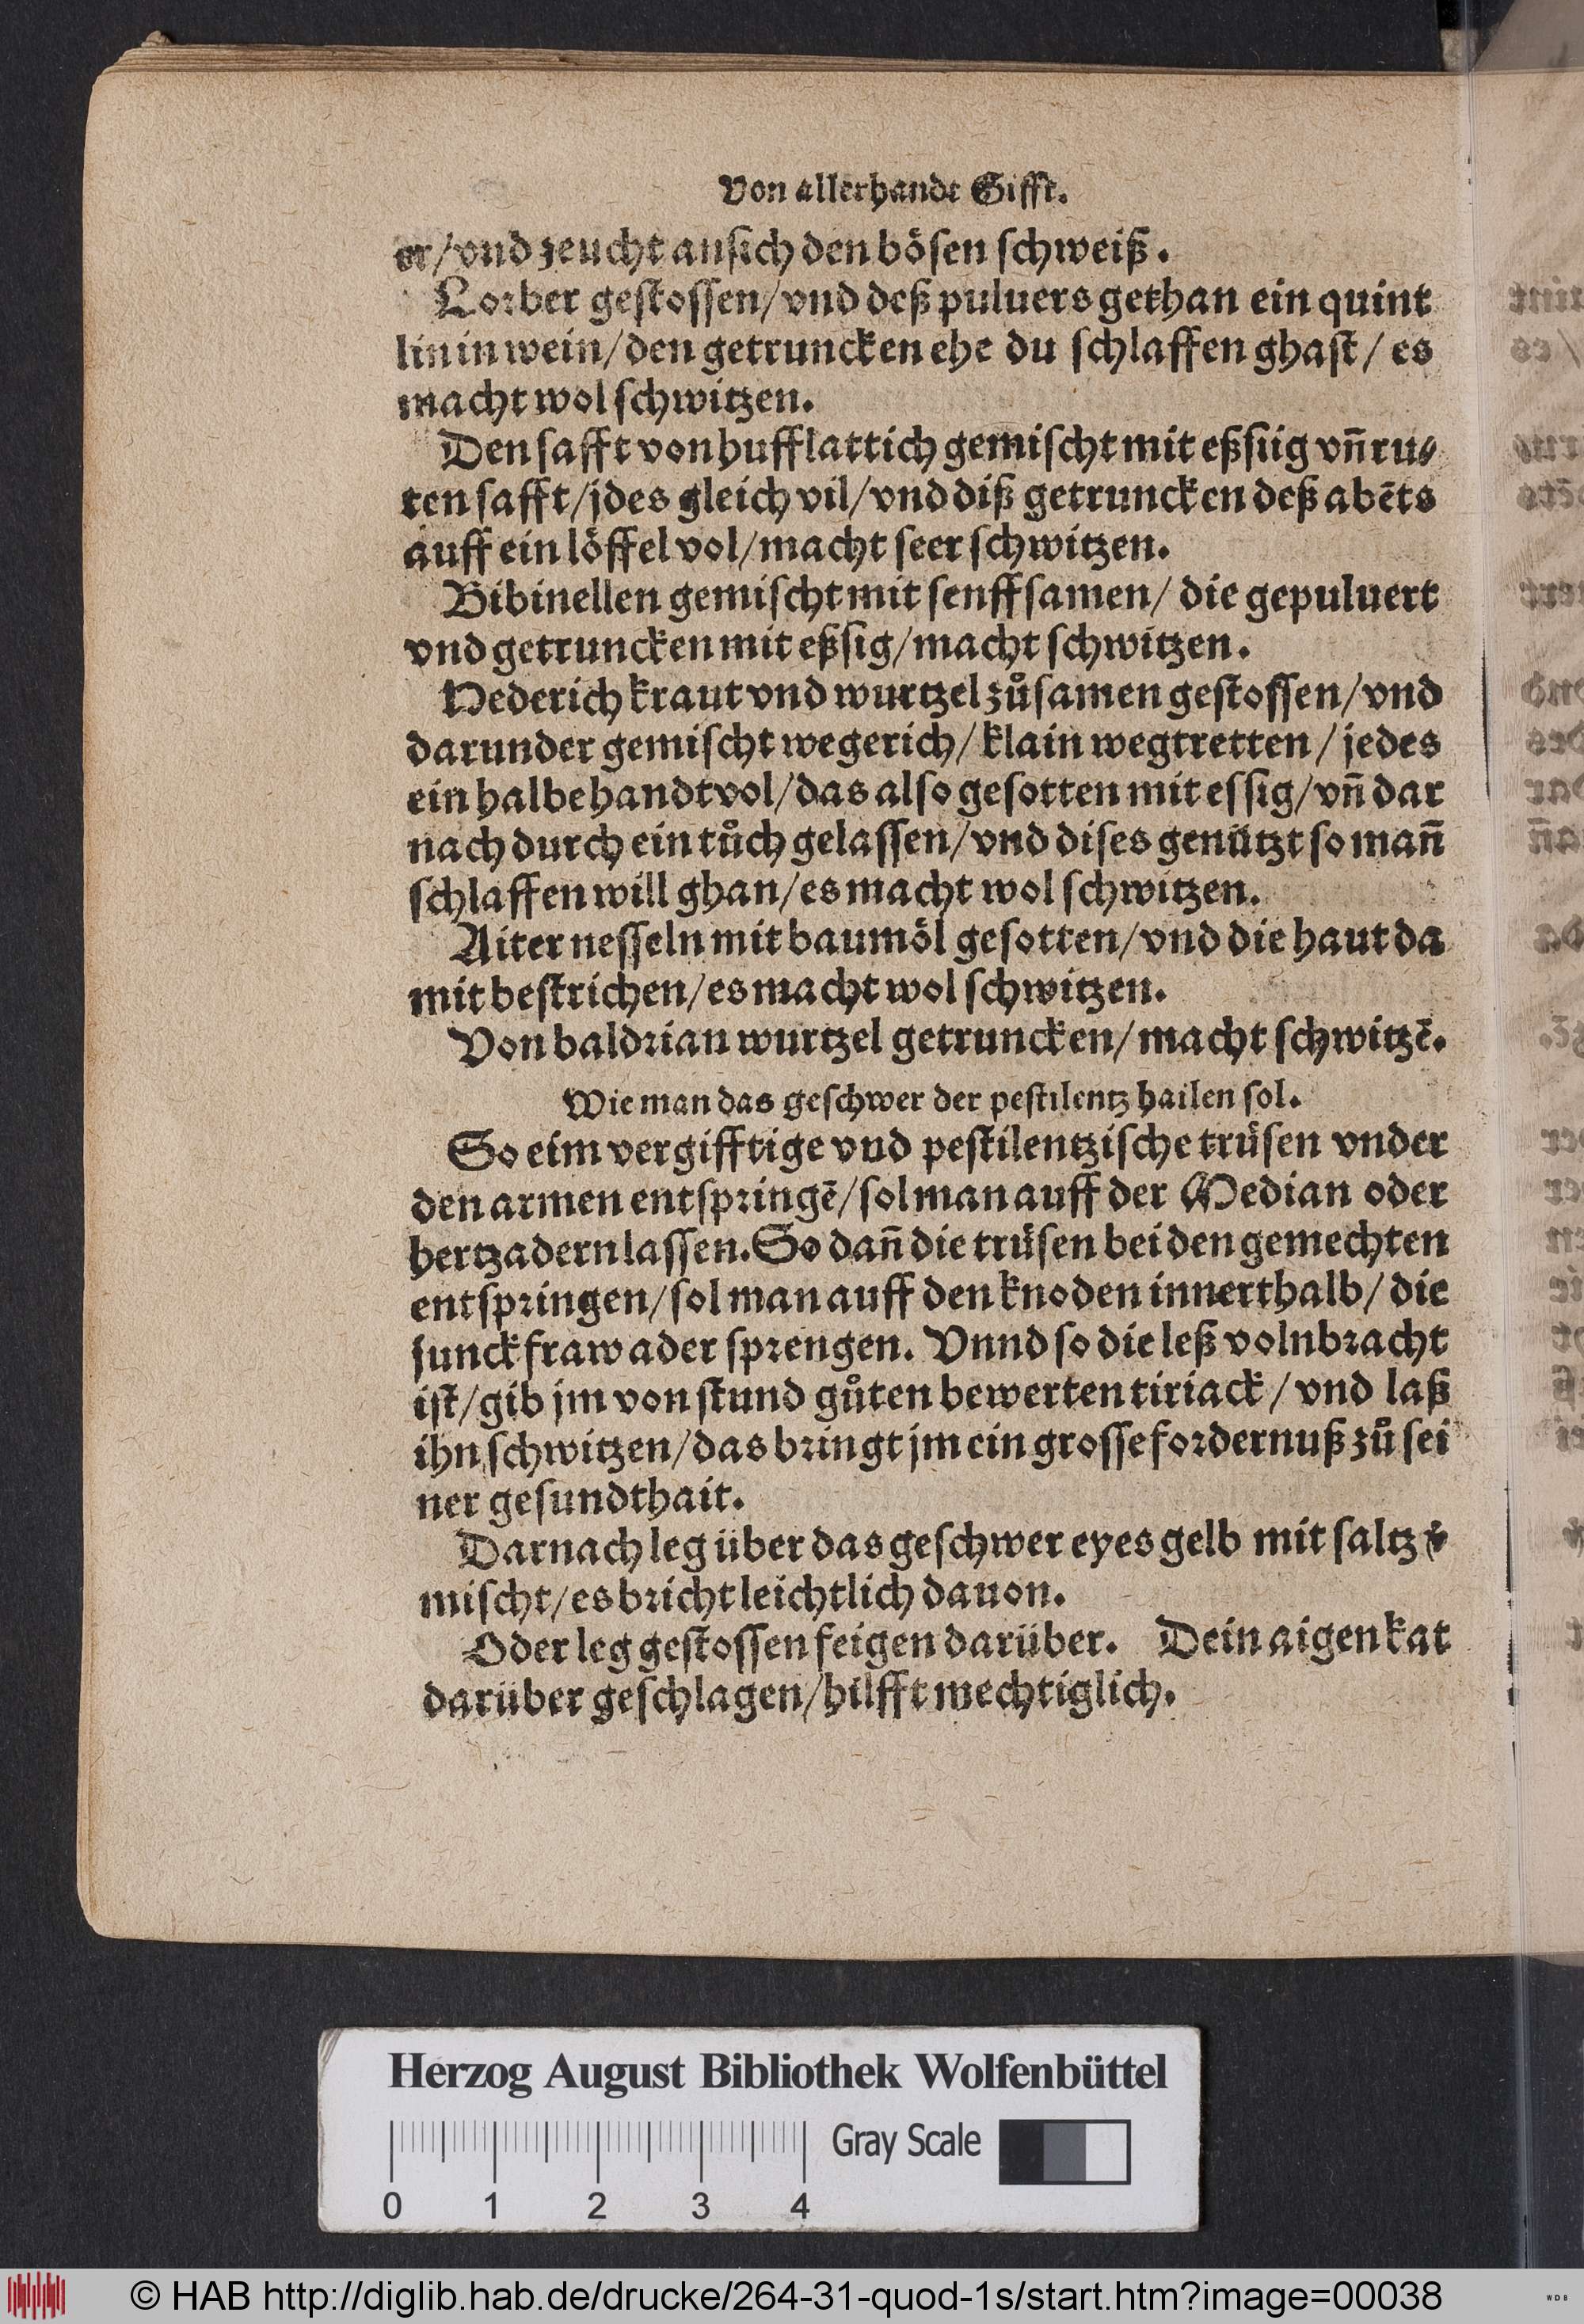 Von allerhandt Gifft.
er/vnd zeucht an sich den bösen schweiß.
Lorber gestossen/vnd deß puluers gethan ein quint
lin in wein/den getruncken ehe du schlaffen ghast/ es
macht wol schwitzen.
Den safft von hufflattich gemischt mit eßsiig vñ ru⸗
ten safft/jdes gleich vil/vnd diß getruncken deß abẽts
auff ein löffel vol/macht seer schwitzen.
Bibinellen gemischt mit senffsamen/ die gepuluert
vnd getruncken mit eßsig/macht schwitzen.
Hederich kraut vnd wurtzel zůsamen gestossen/vnd
darunder gemischt wegerich/ klain wegtretten / jedes
ein halbe handtvol/das also gesotten mit essig/vñ dar
nach durch ein tůch gelassen/vnd dises genützt so mañ
schlaffen will ghan/es macht wol schwitzen.
Aiter nesseln mit baumöl gesotten/vnd die haut da
mit bestrichen/es macht wol schwitzen.
Von baldrian wurtzel getruncken/macht schwitzẽ.
Wie man das geschwer der pestilentz hailen sol.
So eim vergifftige vnd pestilentzische trüsen vnder
den armen entspringẽ/sol man auff der Median oder
hertzadern lassen. So dañ die trüsen bei den gemechten
entspringen/sol man auff den knoden innerthalb/ die
junckfraw ader sprengen. Vnnd so die leß volnbracht
ist/gib jm von stund gůten bewerten tiriack / vnd laß
ihn schwitzen/das bringt jm ein grosse fordernuß zů sei
ner gesundthait.
Darnach leg über das geschwer eyes gelb mit saltz
mischt/es bricht leichtlich dauon.
Oder leg gestossen feigen darüber. Dein aigen kat
darüber geschlagen/hilfft mechtiglich.
Herzog August Bibliothek Wolfenbüttel
Gray Scale
0 1 2 3 4
© HAB http://diglib.hab.de/drucke/264-31-quod-1s/start.htm?image=00038